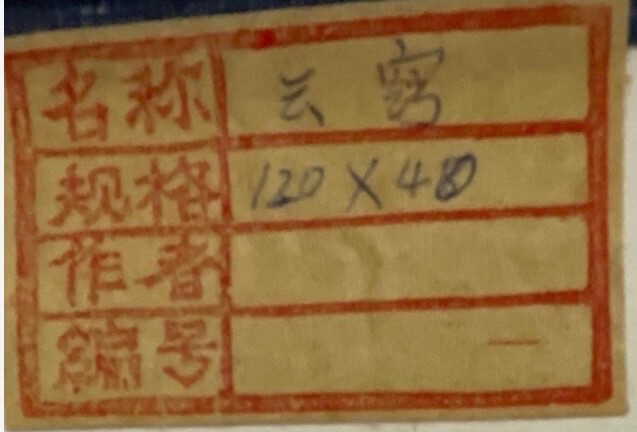 名称 云窍
规格 120X480
作者
编号